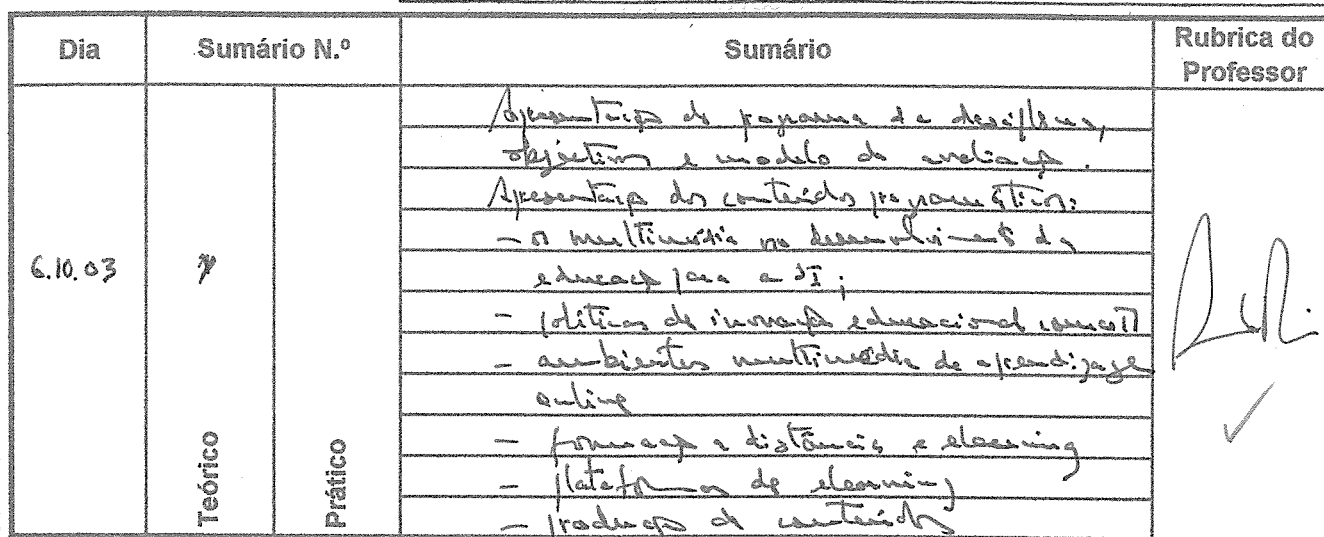 Dia Sumário N.º Sumário Rubrica do Professor
Apresentação do programa da disciplina,
objectivos e modelo de avaliação.
Apresentação dos conteúdos programáticos:
- o multimédia no desenvolvimento da
6.10.03
educação para a SI;
- políticas de inovação educacional com as TI
- ambientes multimédia de aprendizagem
online
- formação a distância e elearning
- plataformas de elearning
- produção de conteúdos
Teórico
Prático